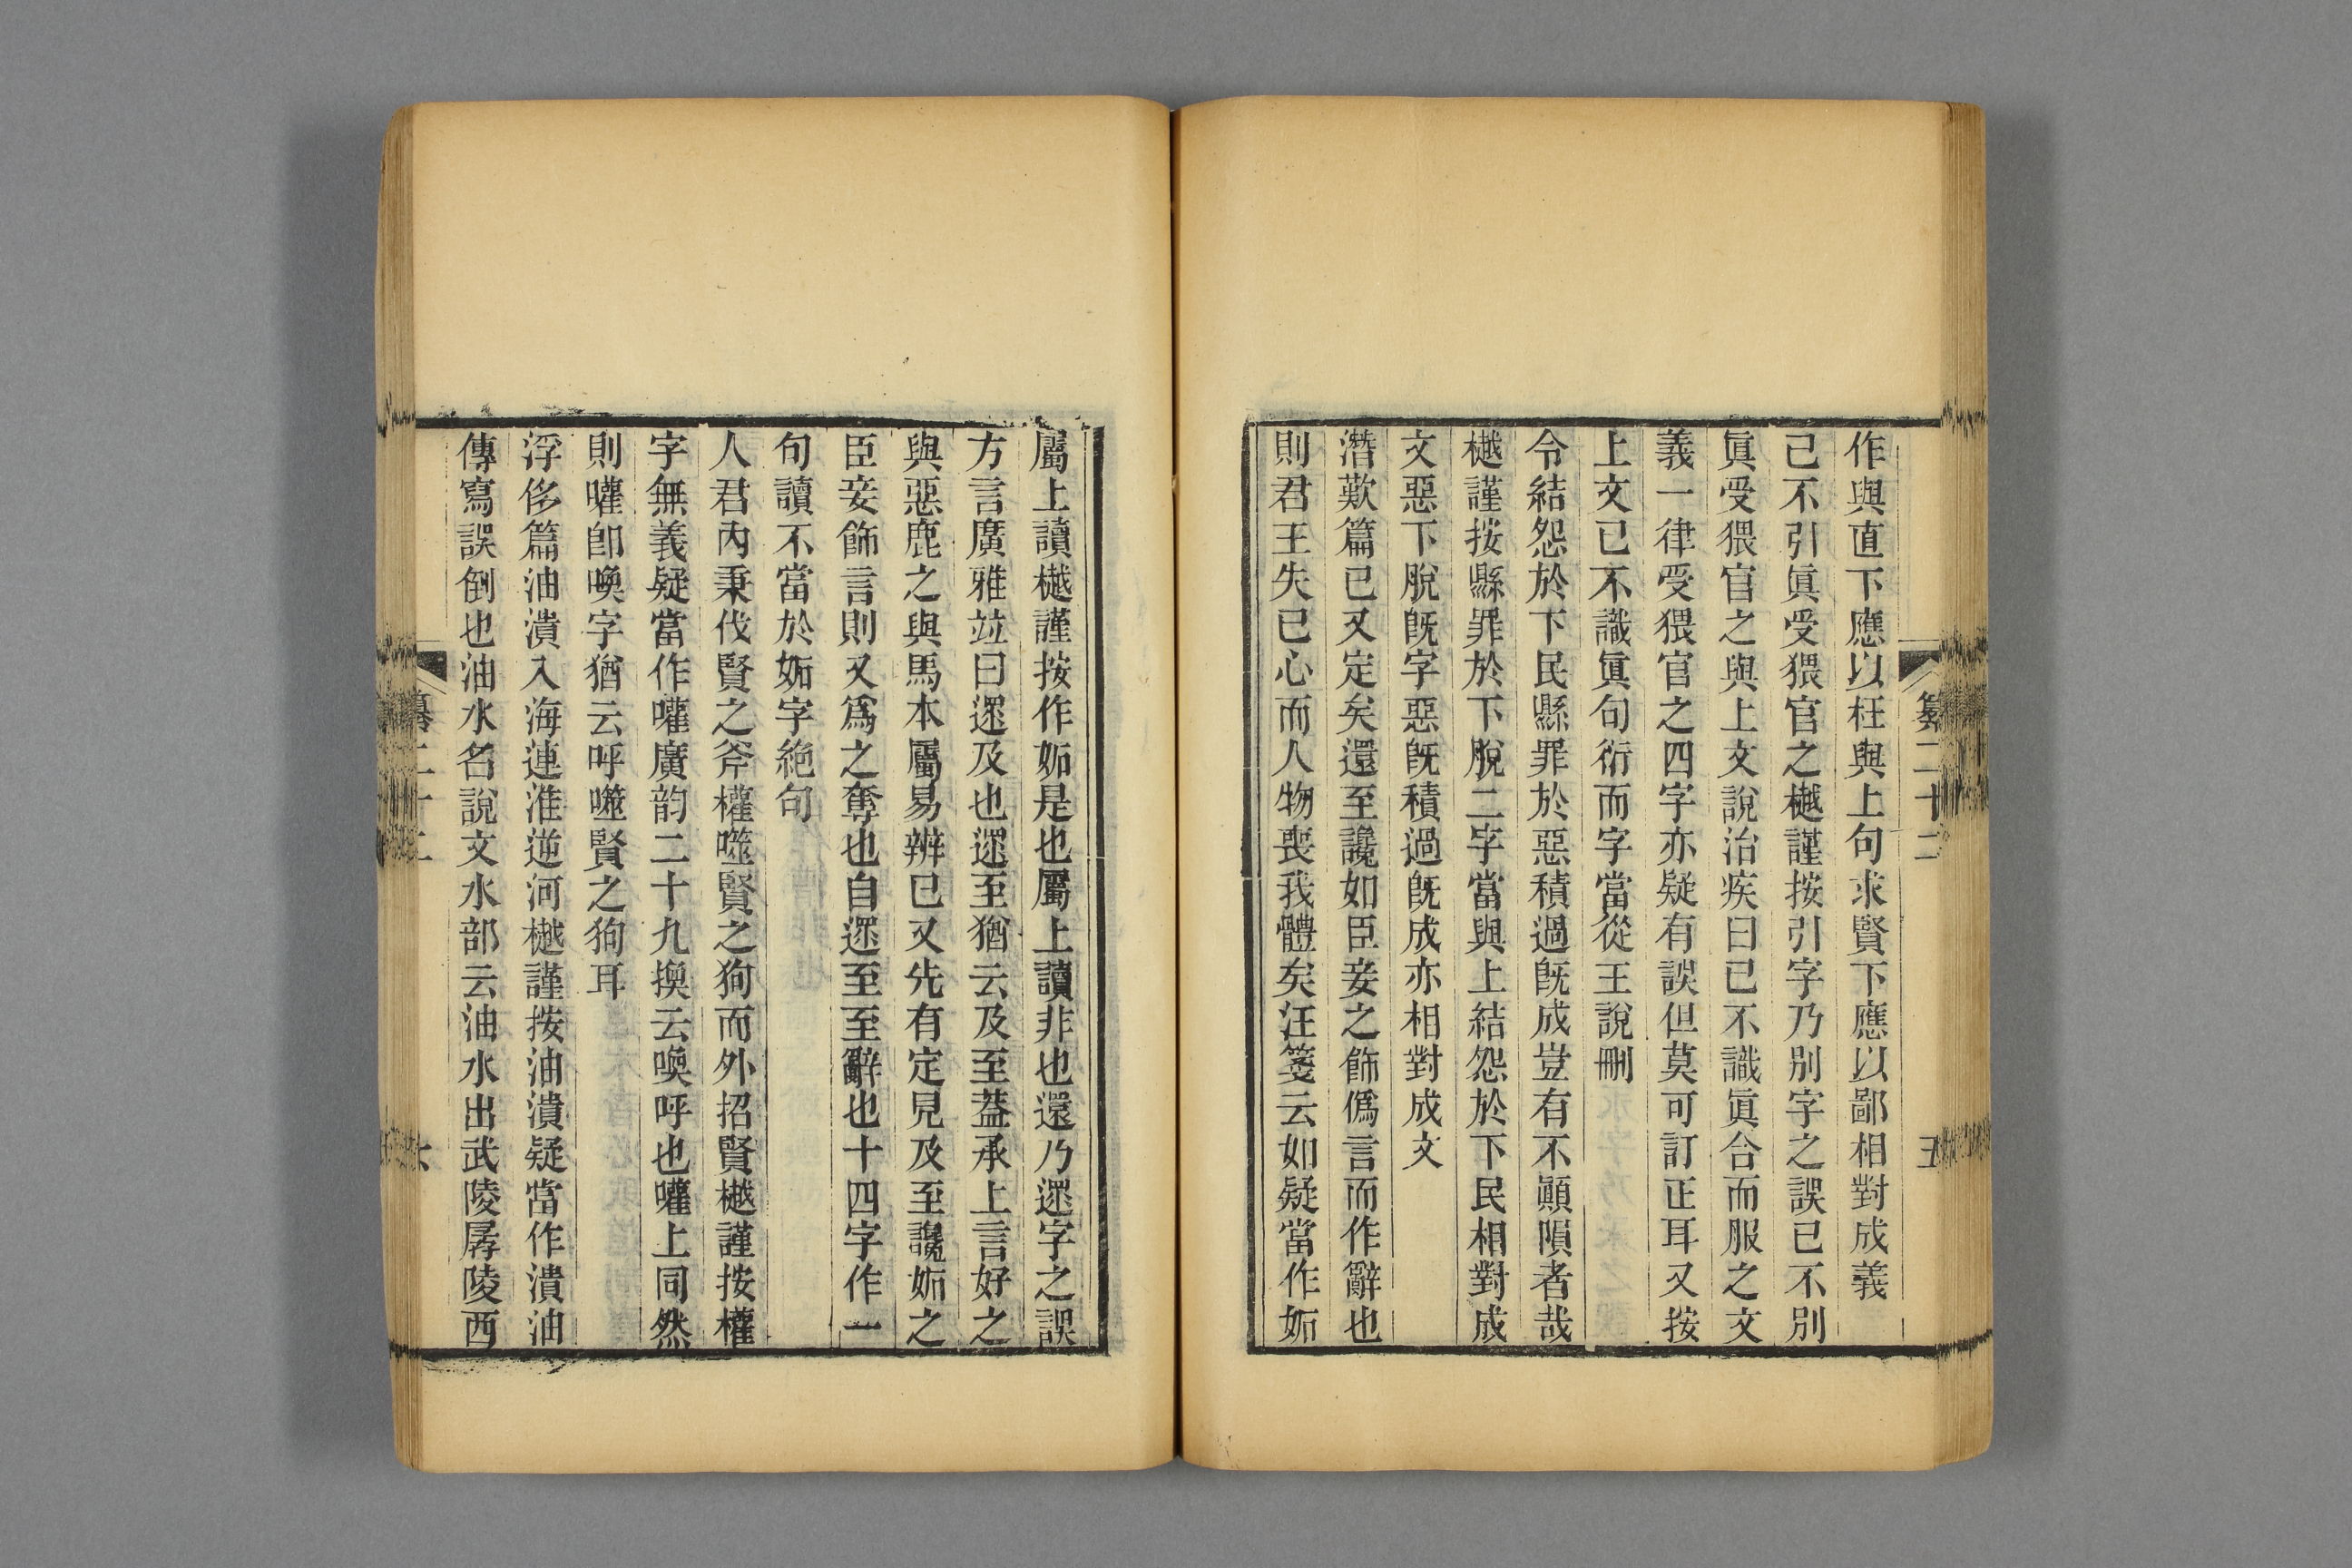 作與直下應以枉與上句求賢下應以鄙相對成義
己不引眞受猥官之樾謹按引字乃別字之誤已不別
眞受猥官之與上文說治疾曰已不識眞合而服之文
義一律受猥官之四字亦疑有誤但莫可訂正耳又按
上文已不識眞句衍而字當從王說刪
令結怨於下民縣罪於惡積過旣成豈有不顚隕者哉
樾謹按縣罪於下脫二字當與上結怨於下民相對成
文惡下脫旣字惡旣積過旣成亦相對成文
潛歎篇已又定矣還至讒如臣妾之飾僞言而作辭也
則君王失己心而人物喪我體矣汪箋云如疑當作妬
纂二十二
五
屬上讀樾謹按作妬是也屬上讀非也還乃遝字之誤
方言廣雅竝曰遝及也遝至猶云及至葢承上言好之
與惡鹿之與馬本屬易辨已又先有定見及至讒妬之
臣妾飾言則又爲之奪也自遝至至辭也十四字作一
句讀不當於妬字絶句
人君內秉伐賢之斧權噬賢之狗而外招賢樾謹按權
字無義疑當作嚾廣韵二十九換云喚呼也嚾上同然
則嚾卽喚字猶云呼噬賢之狗耳
浮侈篇油潰入海連淮逆河樾謹按油潰疑當作潰油
傳寫誤倒也油水名說文水部云油水出武陵孱陵西
纂二十二
六